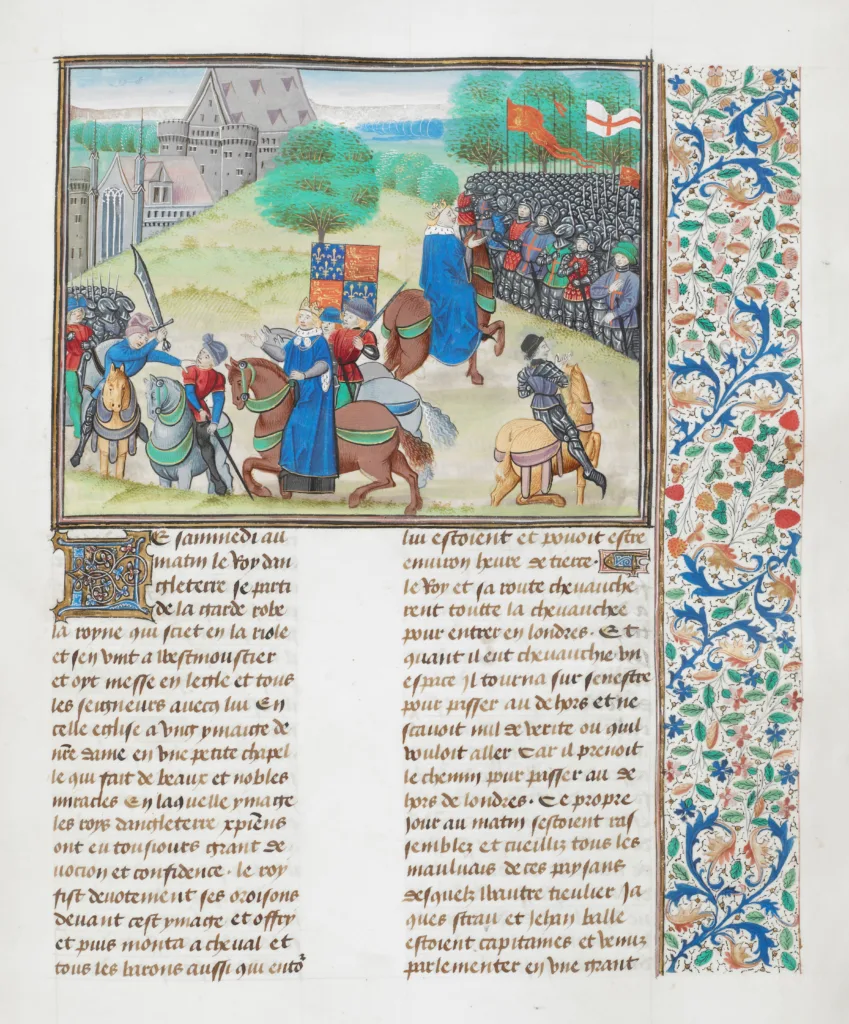 Le sammedi au
matin le Roy dan
gleterre se parti
de la garde robe
la royne qui siet en la riole
et sen vint a westmoustier
et oyt messe en legle et tous
les seigneurs avecq lui En
celle eglise a ung ymaige de
nre dame en une petite chapel
le qui fait de beaux et nobles
miracles En laquelle ymage
les roys dangleterre xpiens
ont eu tousiours grant de
uocion et confidence. le roy
fist deuotement ses oroisons
deuant cest ymage et offry
et puis monta a cheual et
tous les barons aussi qui ento
lui estoient et pouoit estre
environ heure de tierce.
le Roy et sa route cheuauche
rent toutte la chevauchee
pour entrer en londres. Et
quant il eut cheuauchie un
espace Il tourna sur senestre
pour passer au dehors et ne
scauoit nul de verite ou quil
vouloit aller Car il prenoit
le chemin pour passer au de
hors de londres. Ce propre
Jour au matin sestoient ras
semblez et cueilliz tous les
mauluais de ces paysans
desquelz wautre tieulier Ja
ques strau et Jehan balle
estoient capitaines et venuz
parlementer en une grant